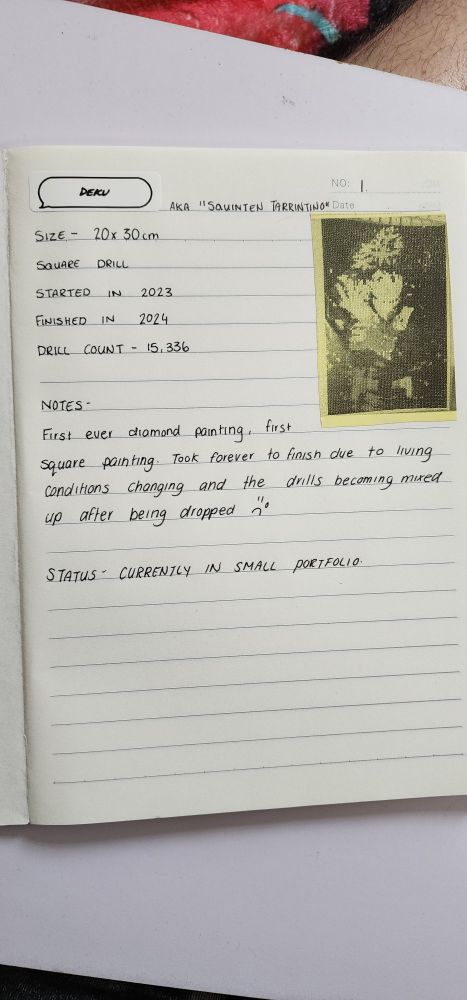 DEKU
NO: 1.
AKA "SQUINTEN TARRINTINO" Date
SIZE - 20 x 30cm
SQUARE DRILL
STARTED IN 2023
FINISHED IN 2024
DRILL COUNT - 15,336
NOTES -
First ever diamond painting, first
square painting. Took forever to finish due to living
conditions changing and the drills becoming mixed
up after being dropped
STATUS - CURRENTLY IN SMALL PORTFOLIO.